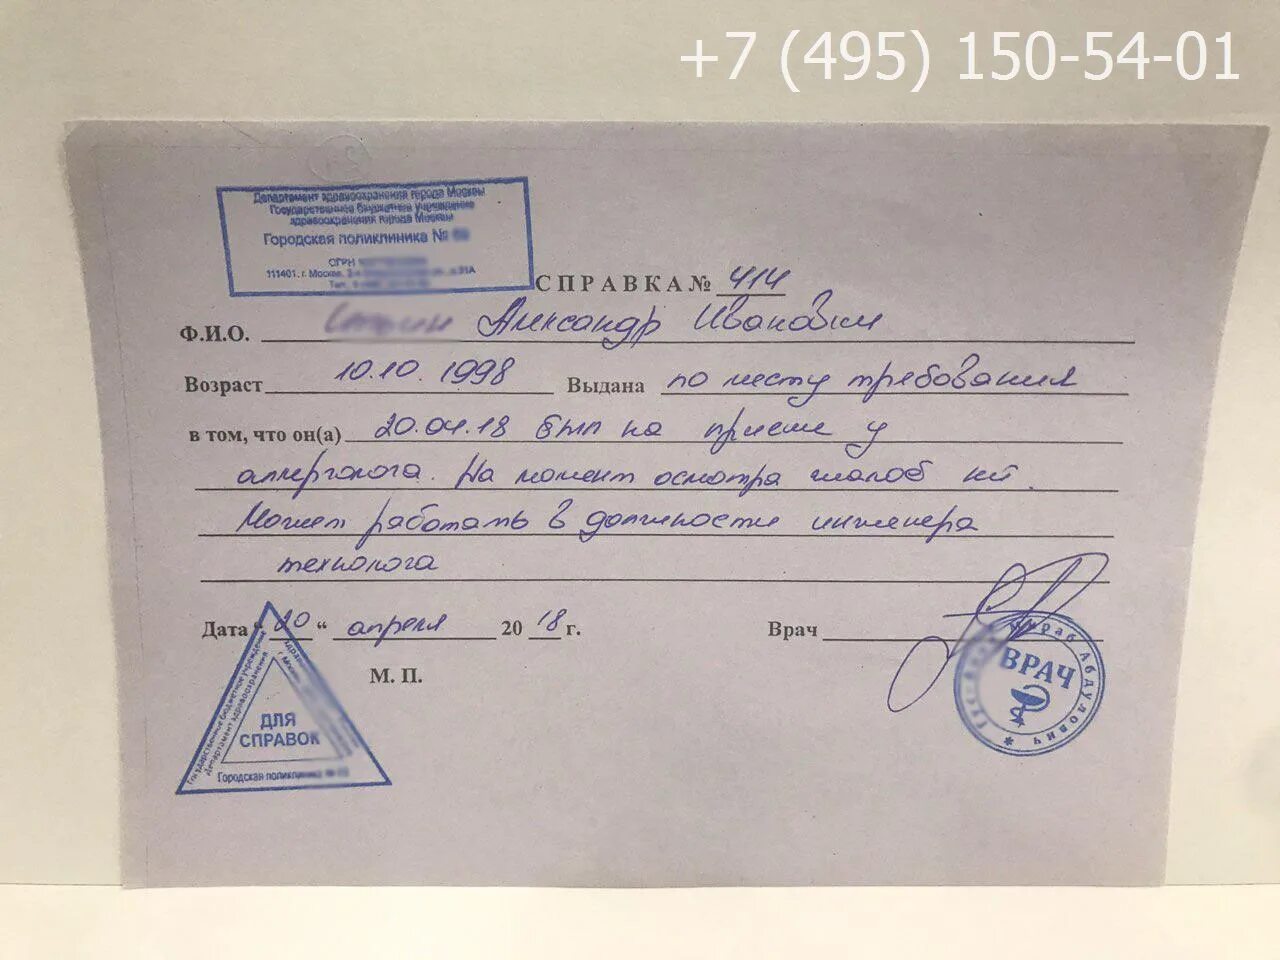 +7 (495) 150-54-01
Департамент здравоохранения города Москвы
Государственное бюджетное учреждение
здравоохранения города Москвы
Городская поликлиника №
ОГРН
111401, г. Москва, 2-я
Тел.
СПРАВКА № 414
Ф.И.О. Александр Иванович
Возраст 10.10.1998 Выдана по месту требования
в том, что он(а) 20.04.18 был на приеме у
аллерголога. На момент осмотра жалоб нет.
Может работать в должности инженера
технолога
Дата "20" апреля 2018 г. Врач
М. П.
Государственное бюджетное учреждение
Департамент здравоохранения
ДЛЯ
СПРАВОК
Городская поликлиника №
ВРАЧ
Абдулович